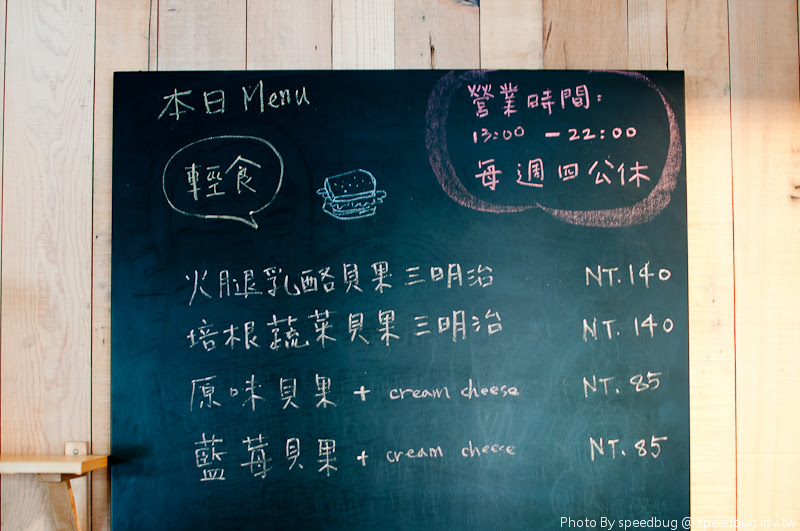 本日 Menu
營業時間:
13:00 - 22:00
每週四公休
輕食
火腿乳酪貝果三明治 NT.140
培根蔬菜貝果三明治 NT.140
原味貝果 + cream cheese NT.85
藍莓貝果 + cream cheese NT.85
Photo By speedbug @ speedbug.idv.tw